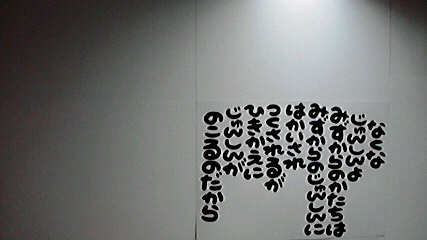 なくな
じゅんしんよ
みずからのかたちは
みずからのじゅんしんに
はかいされ
つくされるが
ひきかえに
じゅんしんが
のこるのだから